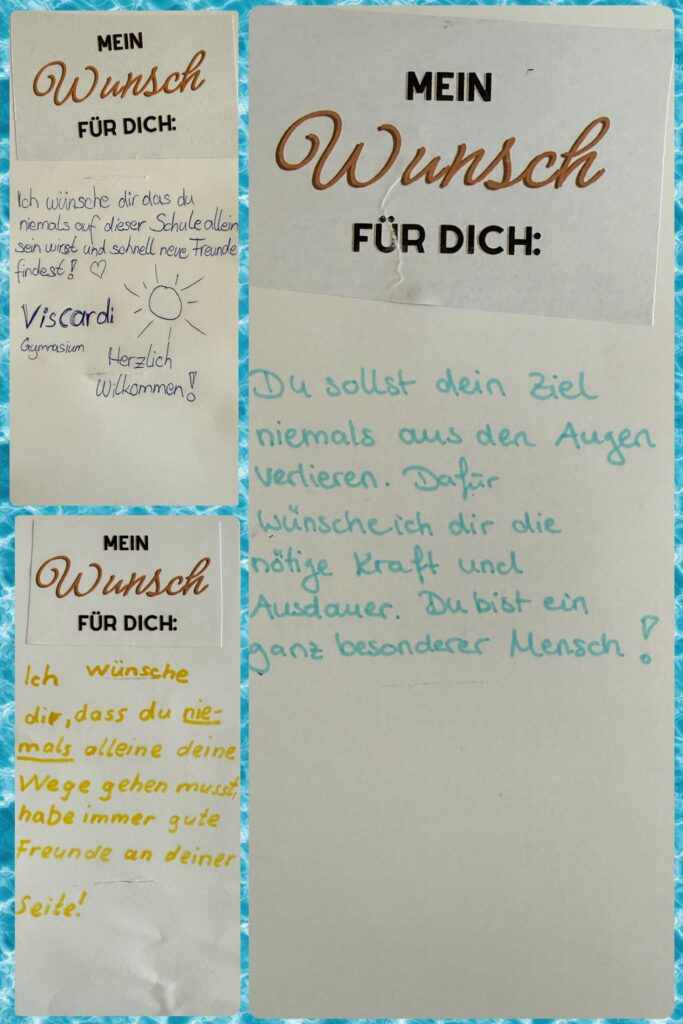 MEIN
Wunsch
FÜR DICH:
Ich wünsche dir das du
niemals auf dieser Schule allein
sein wirst und schnell neue Freunde
findest! ♡
Viscardi
Gymnasium
Herzlich
Wilkommen!
MEIN
Wunsch
FÜR DICH:
Ich wünsche
dir, dass du nie-
mals alleine deine
Wege gehen musst,
habe immer gute
Freunde an deiner
Seite!
MEIN
Wunsch
FÜR DICH:
Du sollst dein Ziel
niemals aus den Augen
verlieren. Dafür
wünsche ich dir die
nötige Kraft und
Ausdauer. Du bist ein
ganz besonderer Mensch!